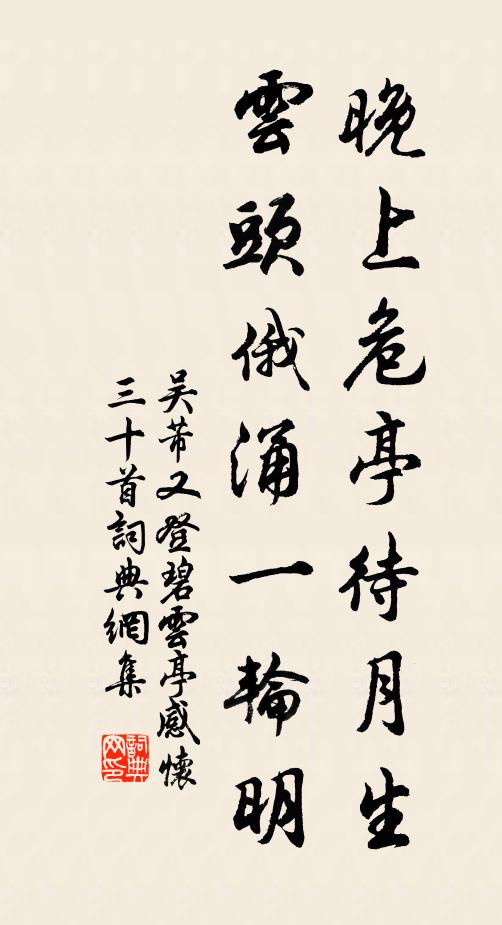 晚上危亭待月生
雲頭俄涌一輪明
吴芾又登碧雲亭感懷
三十首詞典網集
詞典
网印